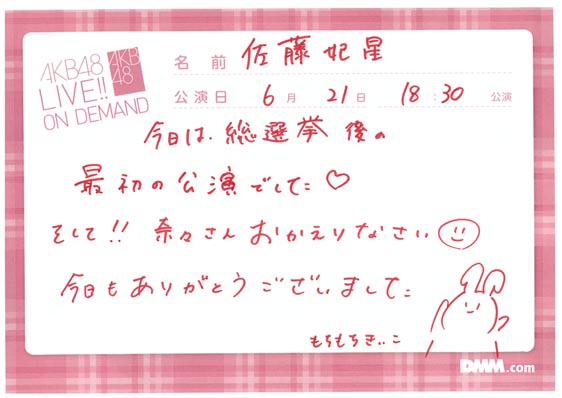 AKB48
LIVE!!
ON DEMAND
AKB
48
名前 佐藤妃星
公演日 6月 21日 18:30 公演
今日は、総選挙後の
最初の公演でした♡
そして!! 奈々さんおかえりなさい
今日もありがとうございました
もちもちきぃこ
DMM.com